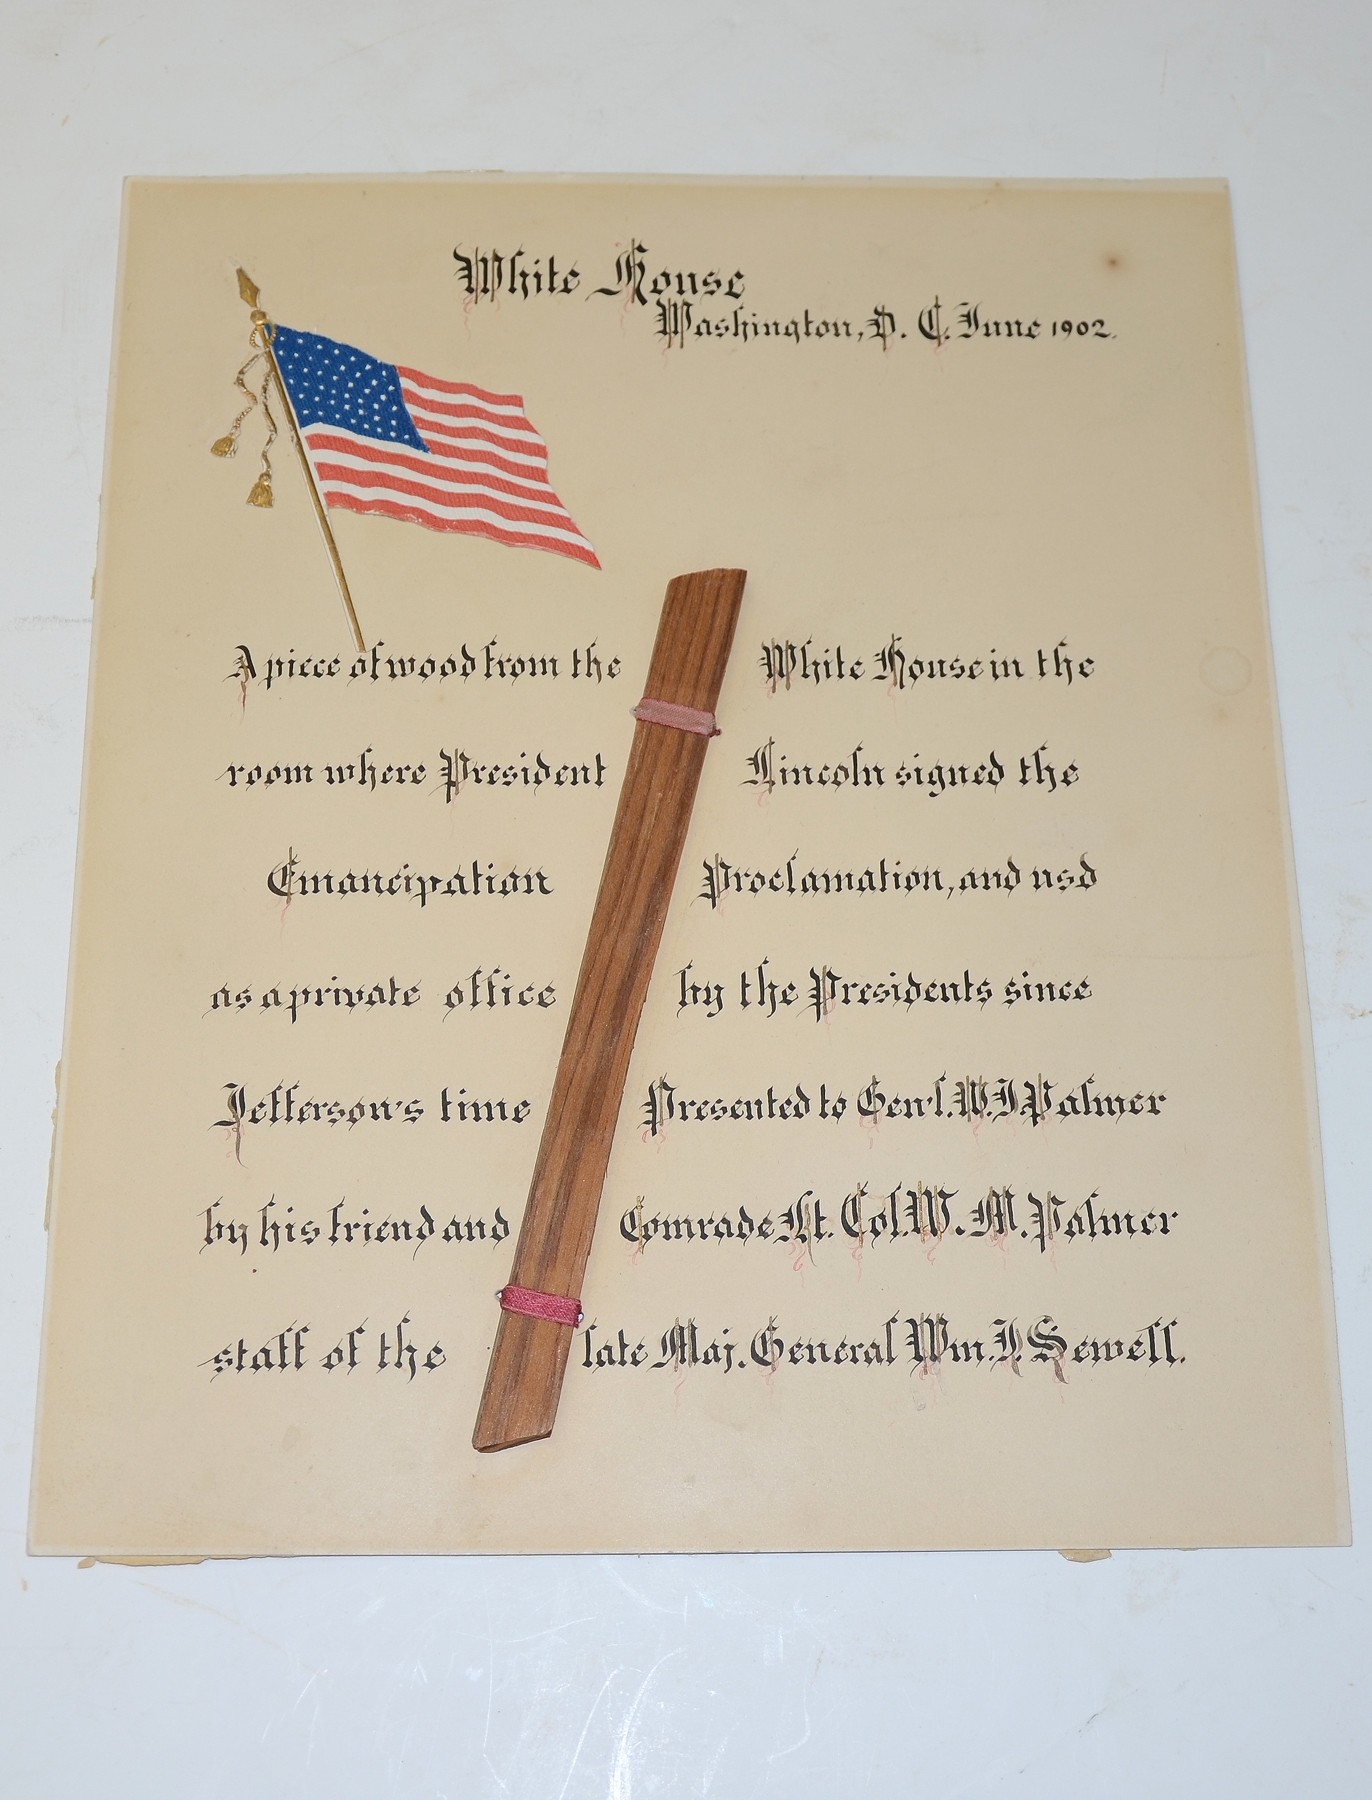 White House
Washington, D. C. June 1902.
A piece of wood from the White House in the
room where President Lincoln signed the
Emancipation Proclamation, and usd
as a private office by the Presidents since
Jefferson's time Presented to Gen'l. W. J Palmer
by his friend and Comrade Lt. Col. W. M. Palmer
staff of the late Maj. General Wm. J. Sewell.